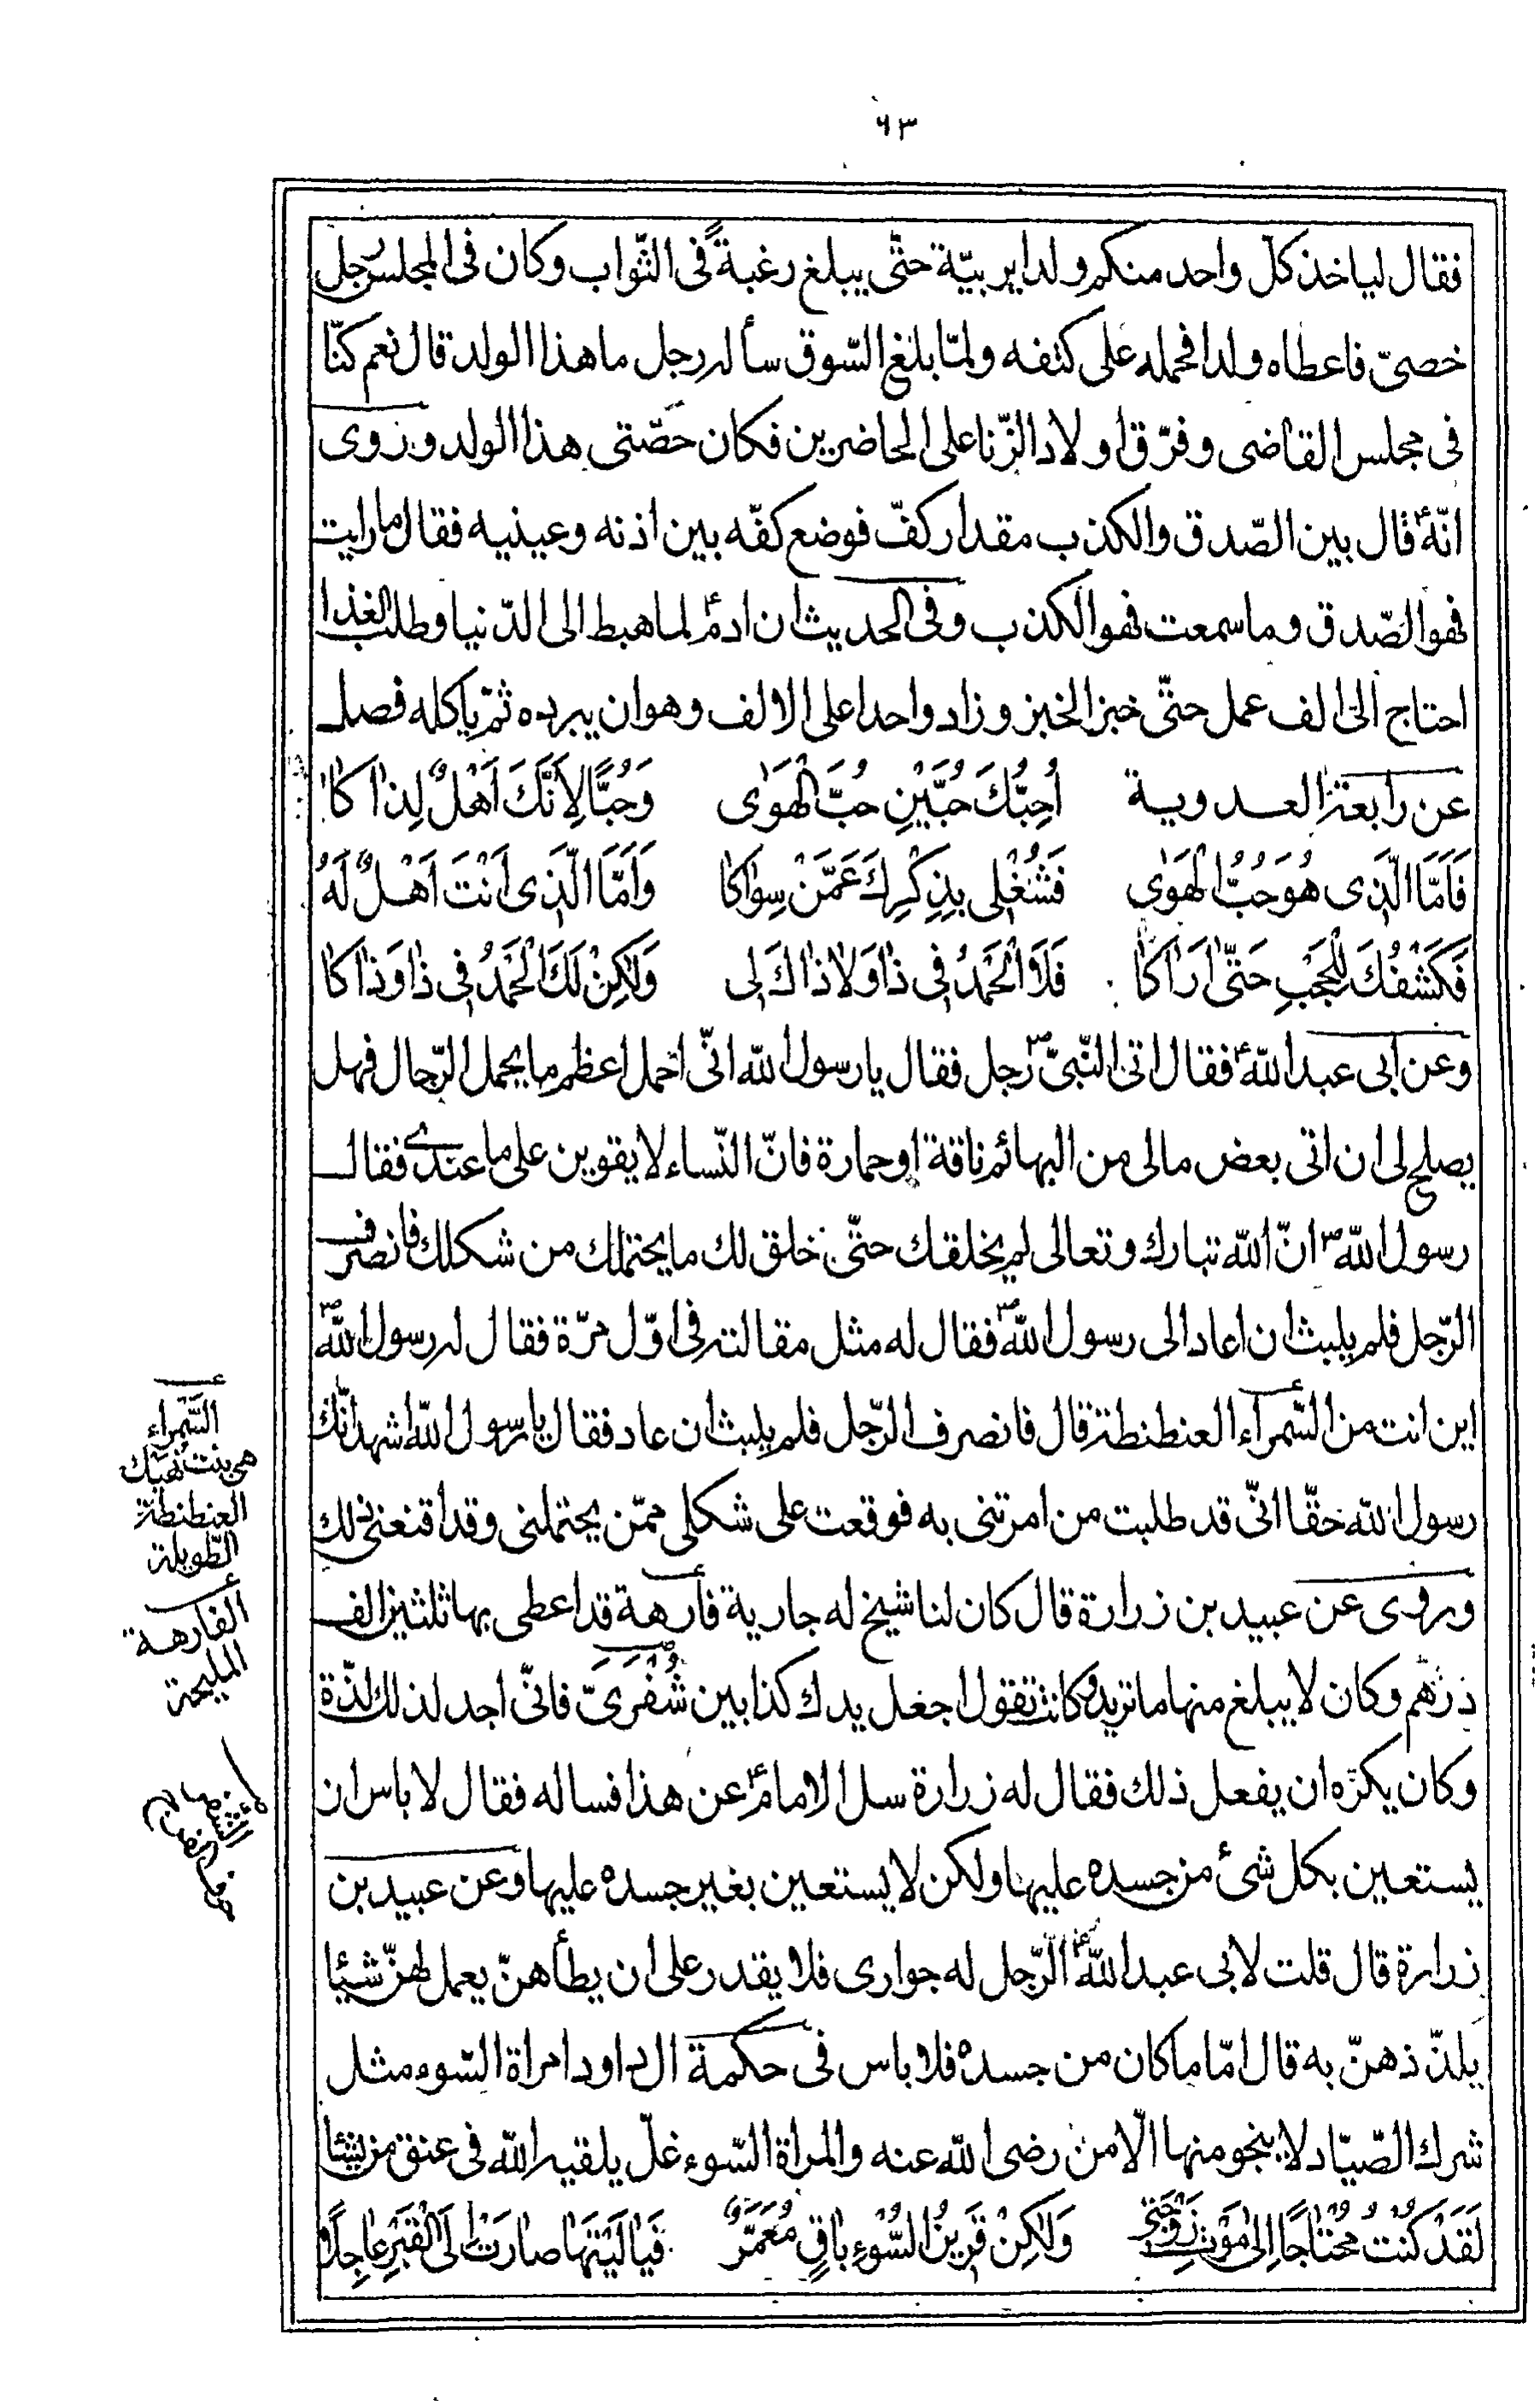 ٦٣
فقال لياخذ كلّ واحد منكم ولدا يربيّه حتّى يبلغ رغبةً فى الثّواب وكان فى المجلس رجل
خصىّ فاعطاه ولدا فحمله على كتفه ولمّا بلغ السّوق سأله رجل ما هذا الولد قال نعم كنّا
فى مجلس القاضى وفرّق اولاد الزّنا على الحاضرين فكان حصّتى هذا الولد وروى
انّهؑ قال بين الصّدق والكذب مقدار كفّ فوضع كفّه بين اذنه وعينيه فقال ما رايت
فهو الصّدق وما سمعت فهو الكذب وفى الحديث ان ادمؑ لما هبط الى الدّنيا وطلب الغذا
احتاج الى الف عمل حتّى خبز الخبز وزاد واحدا على الالف وهو ان يبرده ثمّ ياكله فصل
عن رابعة العدوية اُحِبُّكَ حُبَّيْنِ حُبَّ الْهَوٰى وَحُبًّا لِاَنَّكَ اَهْلٌ لِذاكا
فَاَمَّا الَّذى هُوَ حُبُّ الْهَوٰى فَشُغْلى بِذِكْرِكَ عَمَّنْ سِواكا وَاَمَّا الَّذى اَنْتَ اَهْلٌ لَهُ
فَكَشْفُكَ لِلْحُجْبِ حَتّىٰ اَراكا فَلَا الْحَمْدُ فى ذا وَلا ذاكَ لى وَلٰكِنْ لَكَ الْحَمْدُ فى ذا وَذاكا
وعن ابى عبد اللهؑ فقال اتى النّبىّؐ رجل فقال يا رسول الله انّى احمل اعظم ما يحمل الرّجال فهل
يصلح لى ان اتى بعض مالى من البهائم ناقة او حمارة فانّ النّساء لا يقوين على ما عندى فقال
رسول اللهؐ انّ الله تبارك وتعالى لم يخلقك حتّى خلق لك ما يحتملك من شكلك فانصرف
الرّجل فلم يلبث ان اعاد الى رسول اللهؐ فقال له مثل مقالته فى اوّل مرّة فقال له رسول اللهؐ
اين انت من السّمراء العنطنطة قال فانصرف الرّجل فلم يلبث ان عاد فقال يا رسول الله اشهد انّك
رسول الله حقّا انّى قد طلبت من امرتنى به فوقعت على شكلى ممّن يحتملنى وقد اقنعنى ذلك
وروى عن عبيد بن زرارة قال كان لنا شيخ له جارية فارهة قد اعطى بها ثلثين الف
درهم وكان لا يبلغ منها ما تريد وكانت تقول اجعل يدك كذا بين شُفْرَىّ فانّى اجد لذلك لذّة
وكان يكره ان يفعل ذلك فقال له زرارة سل الامامؑ عن هذا فساله فقال لا باس ان
يستعين بكل شئ من جسده عليها ولكن لا يستعين بغير جسده عليها وعن عبيد بن
زرارة قال قلت لابى عبد اللهؑ الرّجل له جوارى فلا يقدر على ان يطأهنّ يعمل لهنّ شيئا
يلذّ ذهنّ به قال امّا ما كان من جسده فلا باس فى حكمة ال داود امراة السّوء مثل
شرك الصّيّاد لا ينجو منها الّا من رضى الله عنه والمراة السّوء غلّ يلقيه الله فى عنق من يشا
لَقَدْ كُنْتُ مُحْتاجًا اِلى مَوْتِ زَوْجَتى وَلٰكِنْ قَرينُ السُّوْءِ باقٍ مُعَمَّرٌ فَيا لَيْتَها صارَتْ اِلَى الْقَبْرِ عاجِلًا
السّمراء
هى بنت نهيك
العنطنطة
الطّويلة
الفارهة
المليحة